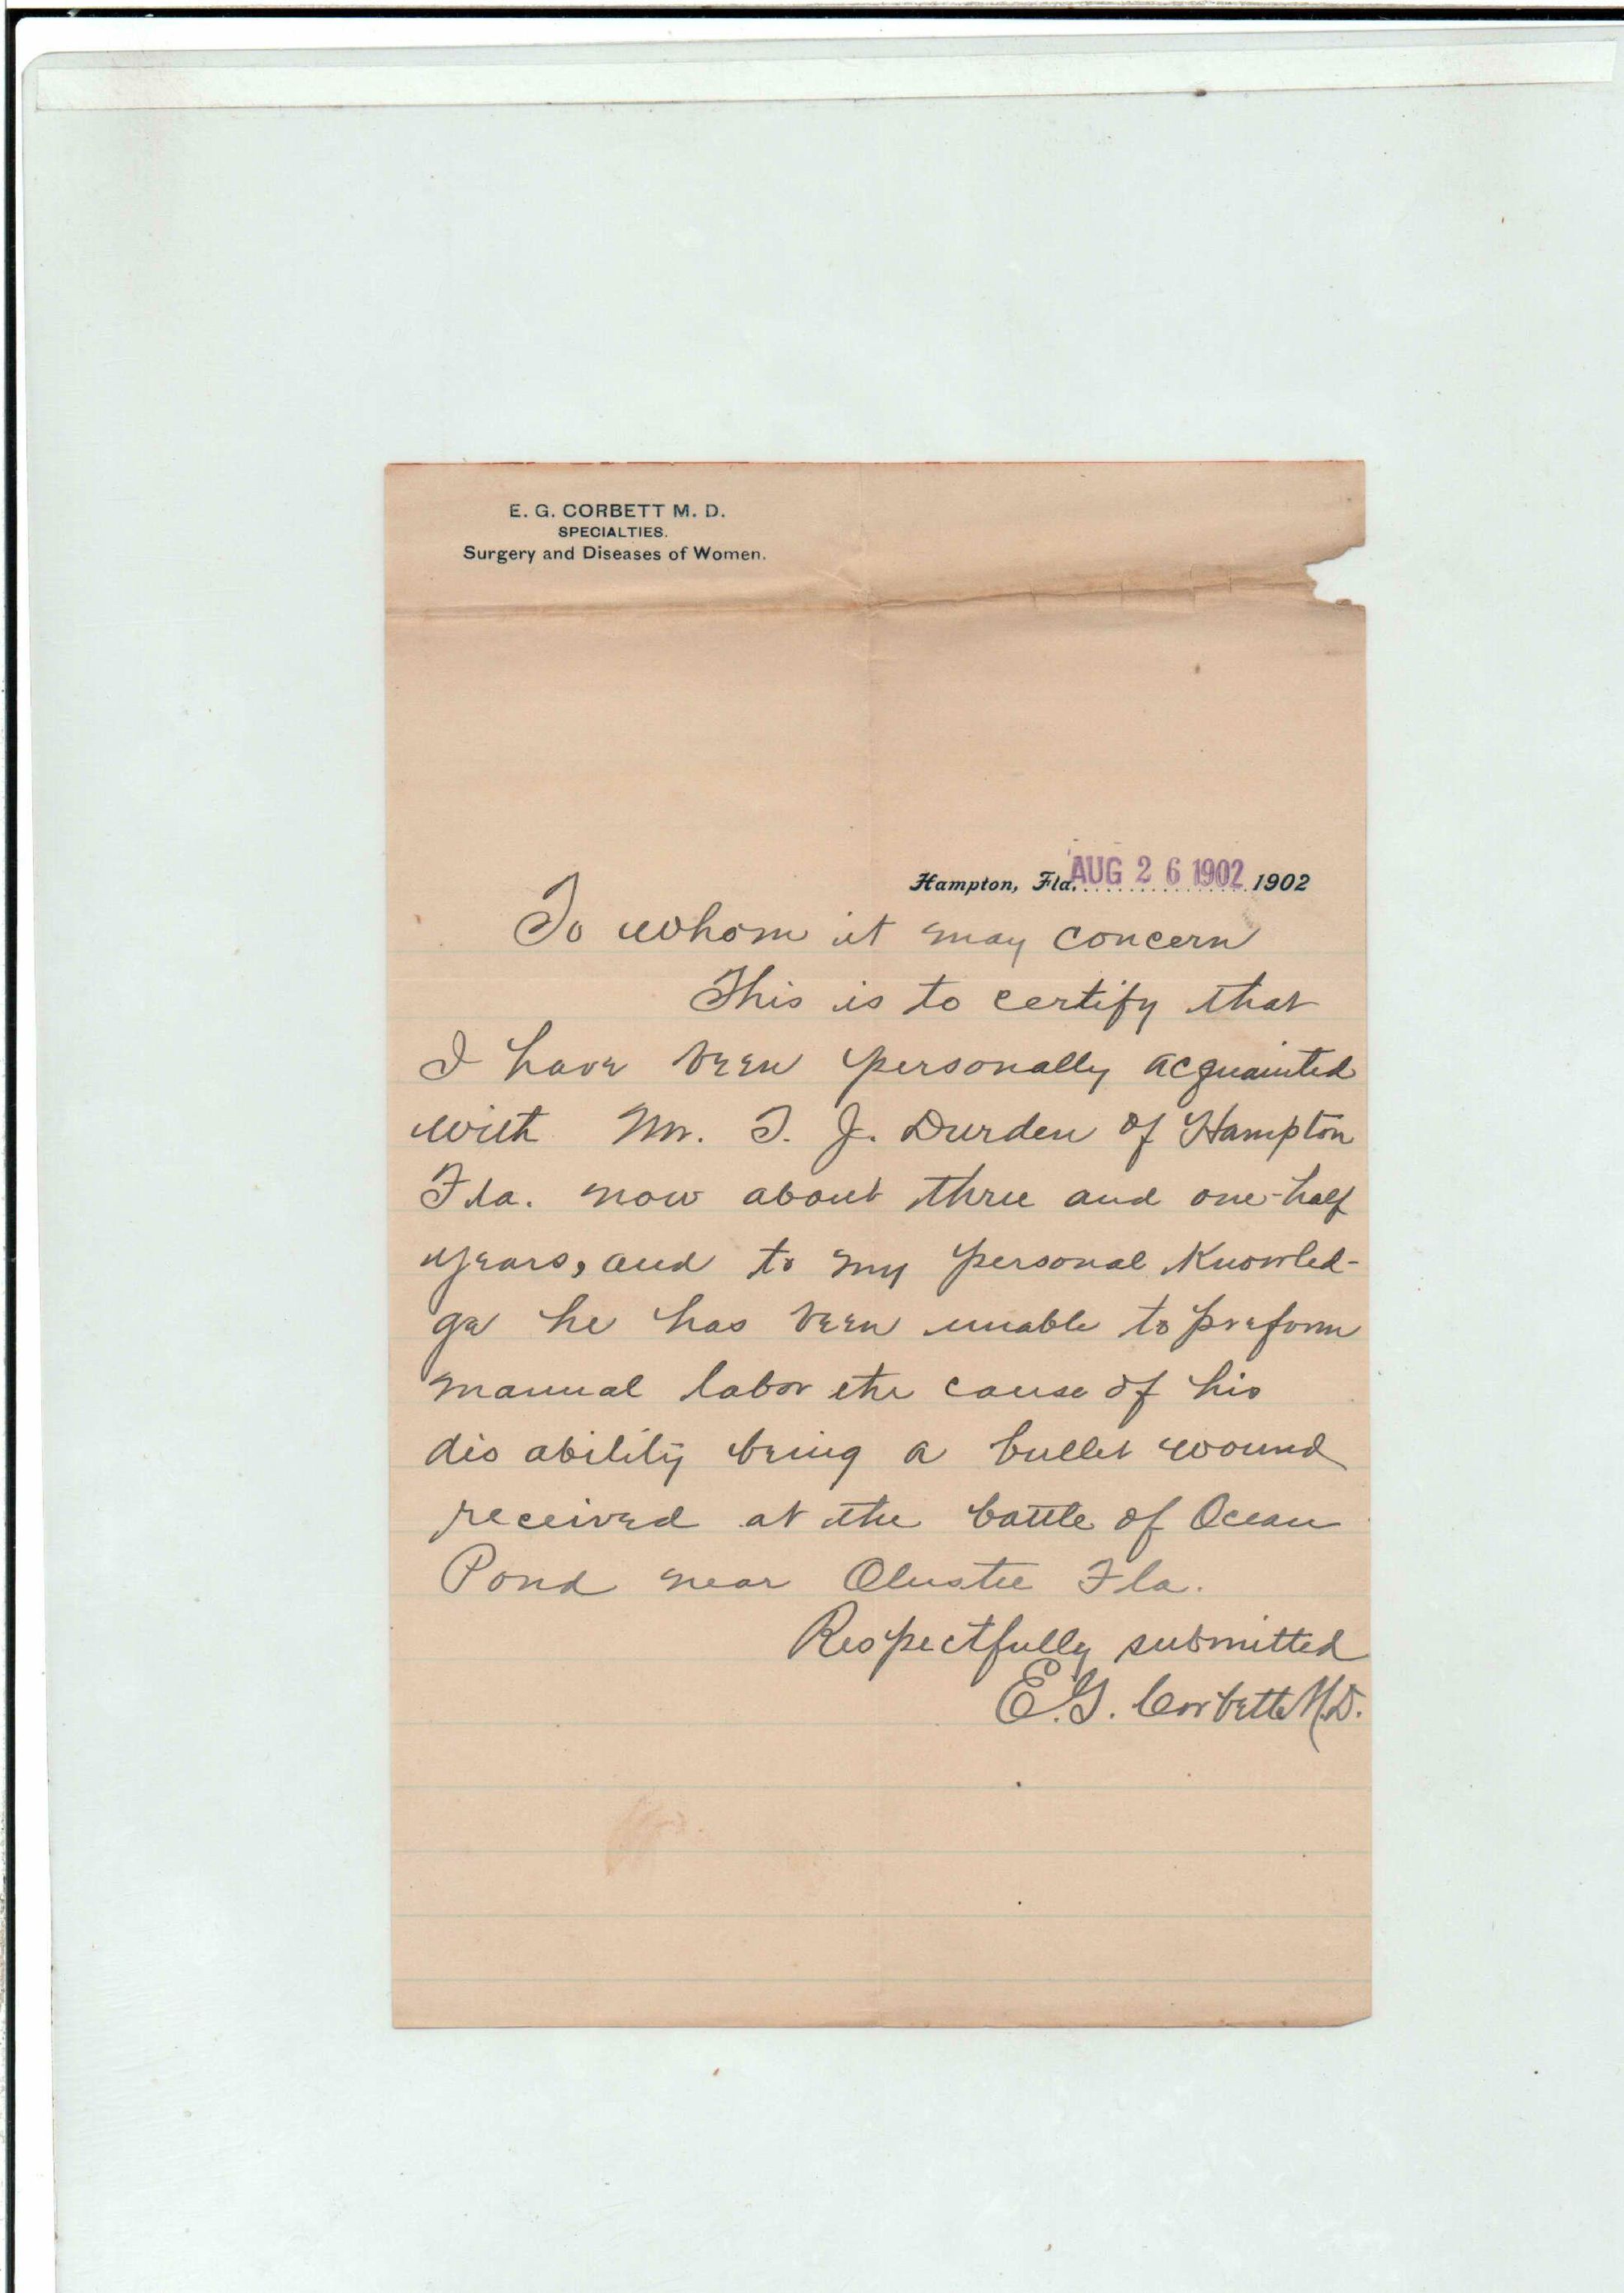 E. G. CORBETT M. D.
SPECIALTIES.
Surgery and Diseases of Women.
Hampton, Fla. AUG 26 1902 1902
To whom it may concern
This is to certify that
I have been personally acquainted
with Mr. T. J. Durden of Hampton
Fla. now about three and one-half
years, and to my personal Knowled-
ge he has been unable to preform
manual labor the cause of his
dis ability being a bullet wound
received at the battle of Ocean
Pond near Olustee Fla.
Respectfully submitted
E.G. Corbett M.D.